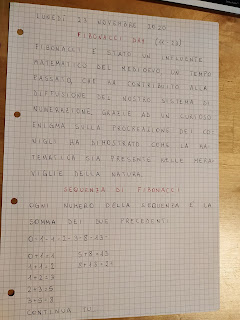 LUNEDÌ 23 NOVEMBRE 2020
FIBONACCI DAY (11-23)
FIBONACCI È STATO UN INFLUENTE
MATEMATICO DEL MEDIOEVO, UN TEMPO
PASSATO, CHE HA CONTRIBUITO ALLA
DIFFUSIONE DEL NOSTRO SISTEMA DI
NUMERAZIONE, GRAZIE AD UN CURIOSO
ENIGMA SULLA PROCREAZIONE DEI CO
NIGLI HA DIMOSTRATO COME LA MA-
TEMATICA SIA PRESENTE NELLE MERA-
VIGLIE DELLA NATURA.
SEQUENZA DI FIBONACCI
OGNI NUMERO DELLA SEQUENZA È LA
SOMMA DEI DUE PRECEDENTI.
0-1-1-2-3-5-8-13-
0+1=1 5+8=13
1+1=2 8+13=21
1+2=3
2+3=5
3+5=8
CONTINUA TU...